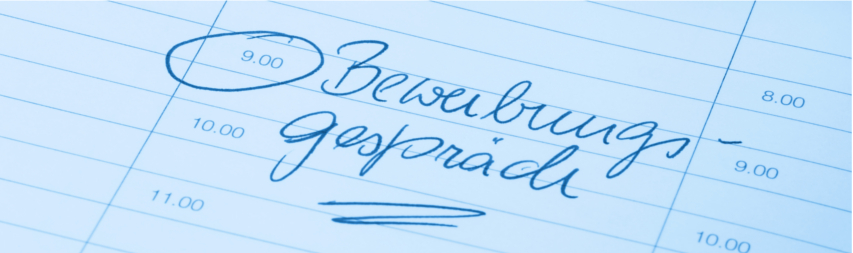 9.00 Bewerbungs-
10.00 gespräch
11.00
8.00
9.00
10.00